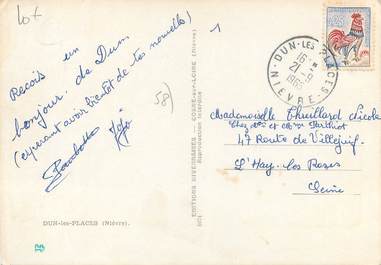 lot
1
58)
Recois un
bonjour. de Dun
(esperant avoir bientot de tes nouvelles)
Jojo
DUN-les-PLACES (Nièvre).
EDITIONS NIVERNAISES - COSNE-sur-LOIRE (Nièvre)
Reproduction interdite
DUN-LES-PLACES
16-*
21-9
1965
NIEVRE
0,25
Mademoiselle Thuillard Nicole
Chez Mr et Mme
47 Route de Villejuif
L'Hay-les-Roses
Seine